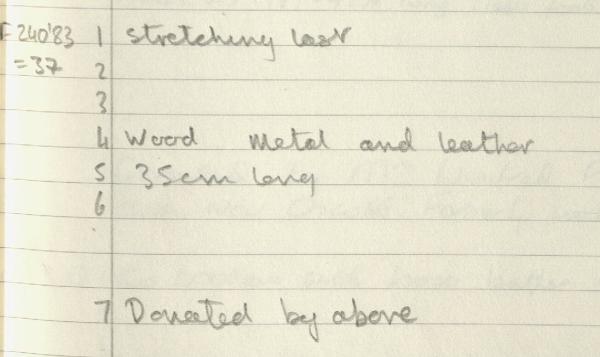 F240'83 1 Stretching last
=37 2
3
4 Wood metal and leather
5 35cm long
6
7 Donated by above